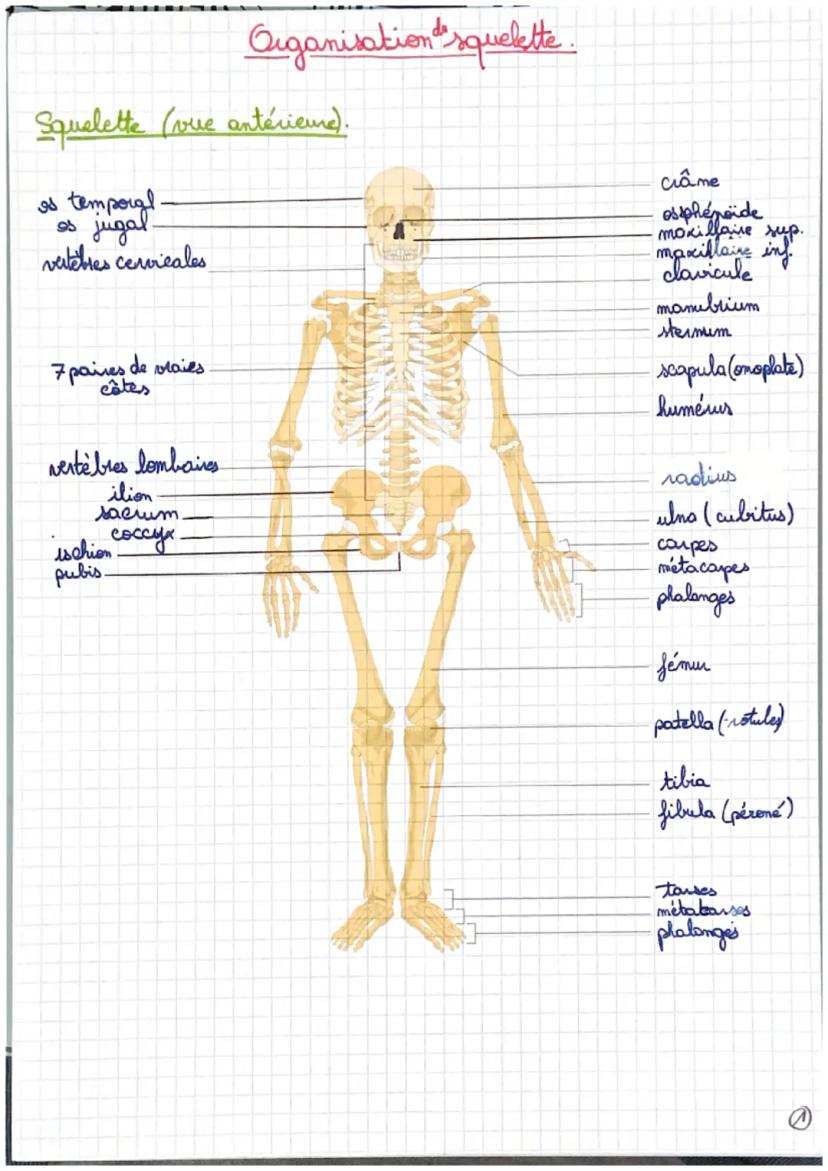 Organisation de squelette.
Squelette (vue antérieure).
os temporal
os jugal
vertèbres cervicales
7 paires de vraies
côtes
vertèbres lombaires
ilion
sacrum
coccyx
ischion
pubis
crâne
os sphénoïde
maxillaire sup.
maxillaire inf.
clavicule
manubrium
sternum
scapula (omoplate)
humérus
radius
ulna (cubitus)
carpes
métacarpes
phalanges
fémur
patella (rotules)
tibia
fibula (péroné)
tarses
métatarses
phalanges
1